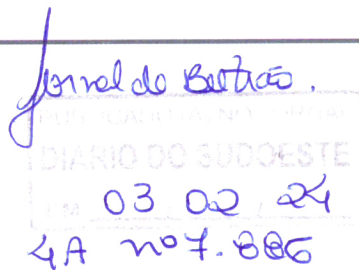 Jornal de Beltrão.
PUBLICADO(A) NO JORNAL
DIÁRIO DO SUDOESTE
EM 03 02 24
4A nº 7.886